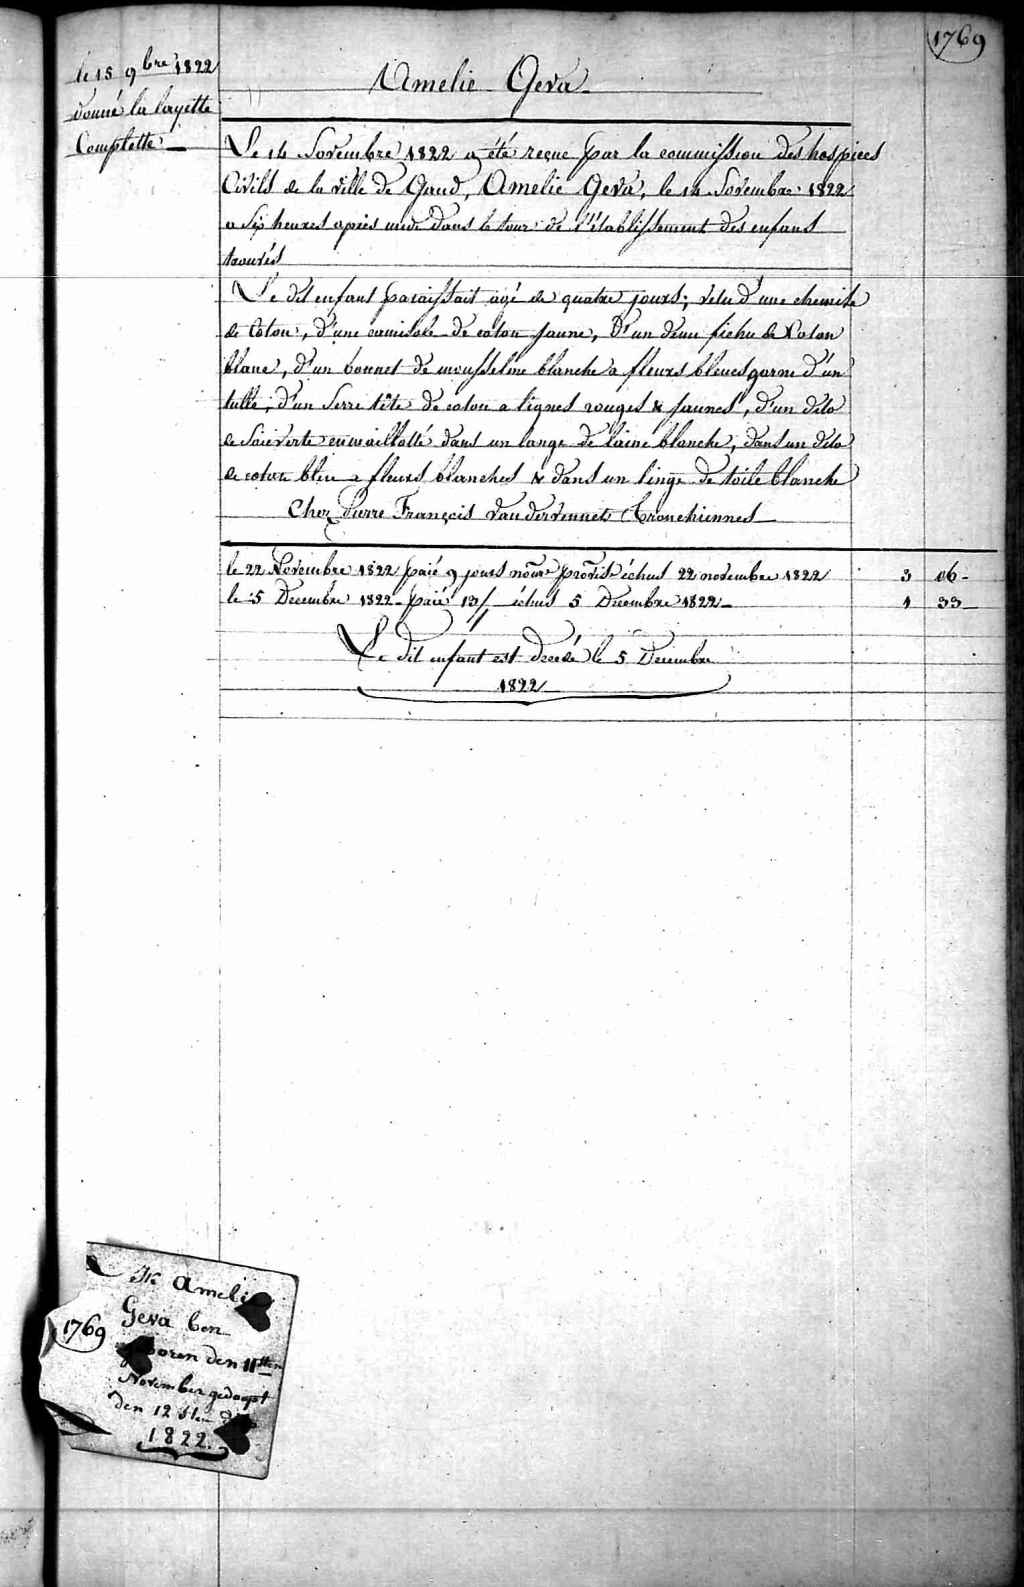 1769
le 15 9bre 1822
donné la layette
Complette
Amelie Geva
Le 14 Novembre 1822 a été reçue par la commission des hospices
Civils de la ville de Gand, Amelie Geva, le 14 Novembre 1822
a Six heures après midi dans le tour de l'établissement des enfans
trouvés
Le dit enfant paraissait agé de quatre jours; vetu d'une chemise
de Coton, d'une camisole de coton jaune, d'un demi fichu de Coton
blanc, d'un bonnet de mousseline blanche a fleurs bleues garni d'un
tulle, d'un Serre tête de coton a lignes rouges & jaunes, d'un dito
de Soie verte enmaillotté dans un lange de laine blanche, dans un dito
de coton bleu a fleurs blanches & dans un linge de toile blanche
Chez Pierre François Vandervennet Tronchiennes
le 22 Novembre 1822 paié 9 jours nourre provisre échus 22 novembre 1822 3 06
le 5 Decembre 1822 paié 13/ échus 5 Decembre 1822 1 33
Le dit enfant est decedé le 5 Decembre
1822
Ik Amelie
Geva ben
1769
geboren den 11sten
November gedoopt
den 12 sten
1822.